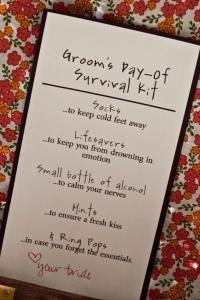 Groom's Day-Of
Survival Kit
Socks
...to keep cold feet away
Lifesavers
...to keep you from drowning in
emotion
Small bottle of alcohol
...to calm your nerves
Mints
...to ensure a fresh kiss
& Ring Pops
...in case you forget the essentials.
your bride